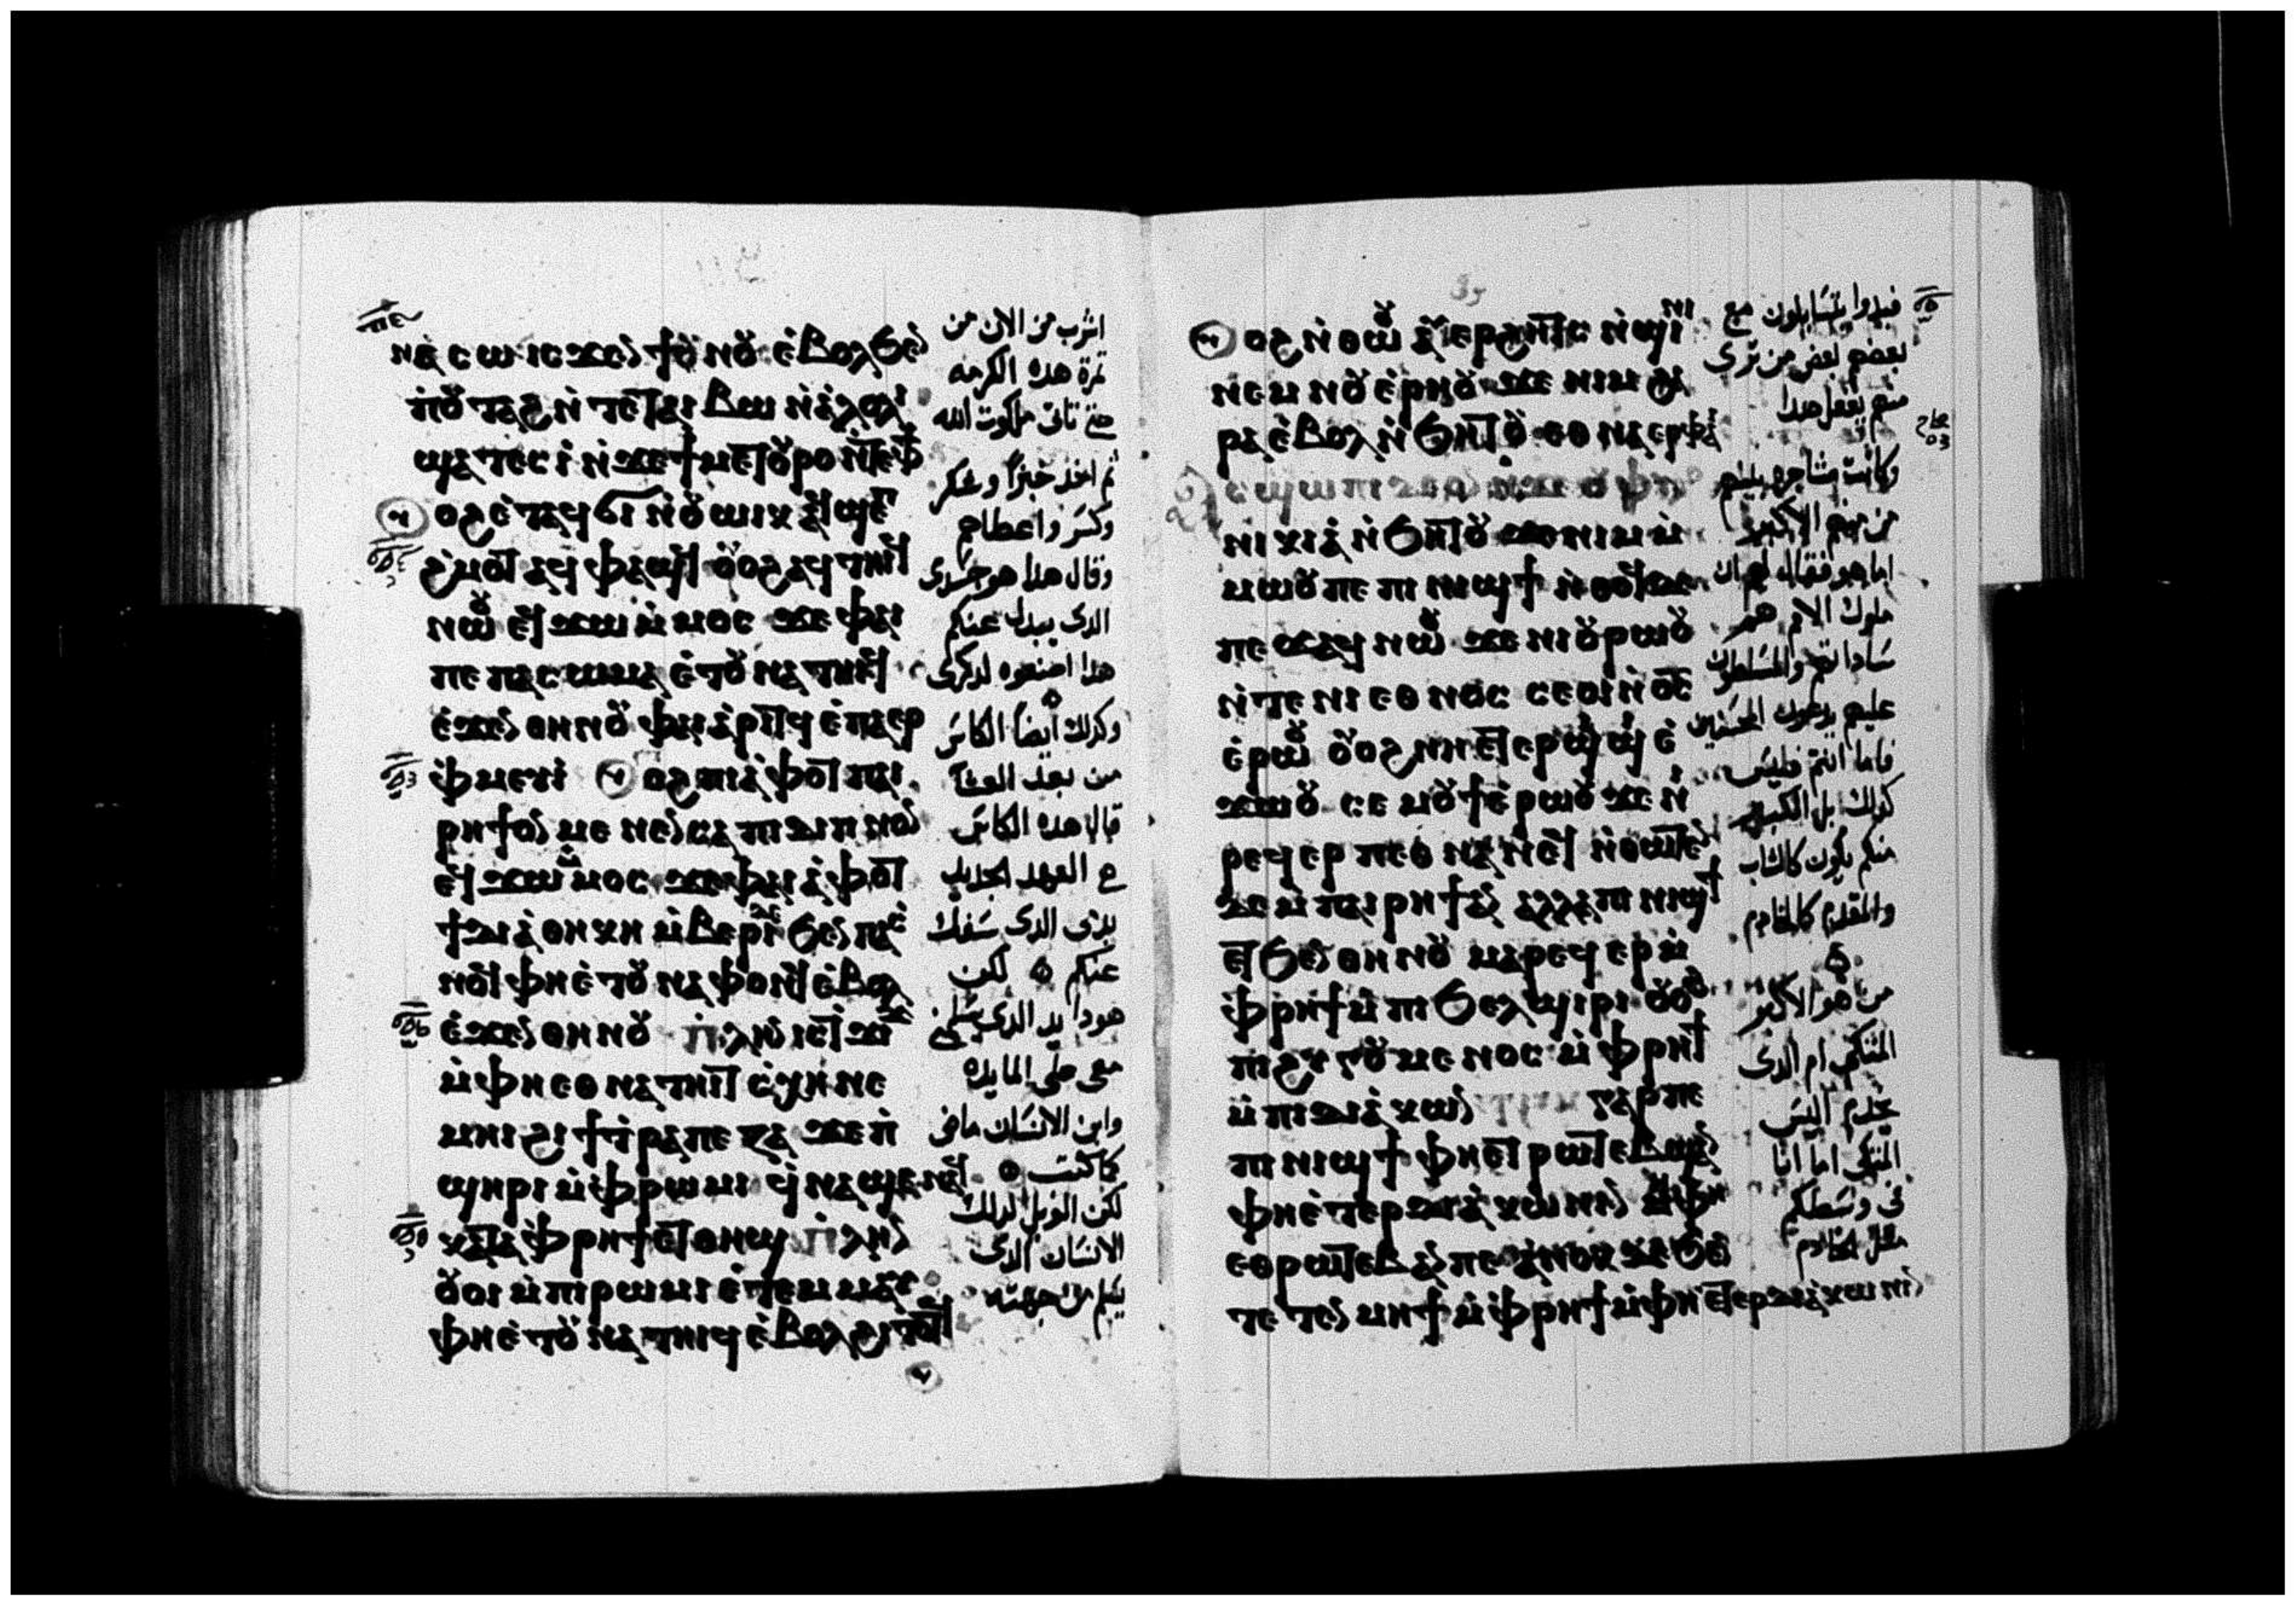 ⲛⲉ ⲥⲱ ⲓⲥϫⲉⲛ ϯⲛⲟⲩ ⲉⲃⲟⲗϧⲉⲛ
ϣⲁⲧⲉⲥⲓ ⲛϫⲉϯⲙⲉⲧⲟⲩⲣⲟ ⲛⲧⲉⲫϯ
ⲟⲩⲟϩ ⲉⲧⲁϥϭⲓ ⲛⲟⲩⲱⲓⲕ ⲁϥϣⲉⲡ
ϩⲙⲟⲧ ⲁϥⲫⲁϣϥ ⲟⲩⲟϩ ⲁϥⲧⲏⲓϥ
ⲛⲱⲟⲩ ⲉϥϫⲱ ⲙⲙⲟⲥ ϫⲉ ⲫⲁⲓ
ⲡⲉ ⲡⲁⲥⲱⲙⲁ ⲉⲧⲟⲩⲛⲁⲧⲏⲓϥ
ⲉϫⲉⲛ ⲑⲏⲛⲟⲩ ⲫⲁⲓ ⲁⲣⲓⲧϥ ⲉⲡⲁⲉⲣ
ⲫⲙⲉⲩⲓ ⲟⲩⲟϩ ⲡⲓⲁⲫⲟⲧ ⲡⲁⲓ
ⲣⲏϯ ⲟⲛ ⲙⲉⲛⲉⲛⲥⲁ ⲡⲓⲇⲓⲡⲛⲟⲛ
ⲉϥϫⲱ ⲙⲙⲟⲥ ϫⲉ ⲡⲁⲓⲁⲫⲟⲧ
ϯⲇⲓⲁⲑⲏⲕⲏ ⲙⲃⲉⲣⲓ ϧⲉⲛ ⲡⲁⲥ
ⲛⲟϥ ⲫⲏⲉⲧⲟⲩⲛⲁⲫⲟⲛϥ ⲉⲃⲟⲗ
ⲉϫⲉⲛ ⲑⲏⲛⲟⲩ ⲡⲗⲏⲛ ⲓⲥ ⲧϫⲓϫ
ⲙⲫⲏⲉⲑⲛⲁⲧⲏⲓⲧ ⲥⲭⲏ ⲛⲉ
ⲙⲏⲓ ϩⲓ ϯⲧⲣⲁⲡⲉⲍⲁ ϫⲉ ⲡ
ϣⲏⲣⲓ ⲙⲫⲣⲱⲙⲓ ϥⲛⲁϣⲉ ⲛⲁϥ
ⲕⲁⲧⲁ ⲫⲣⲏϯ ⲉⲧⲑⲏϣ ⲡⲗⲏⲛ
ⲟⲩⲟⲓ ⲙⲡⲓⲣⲱⲙⲓ ⲉⲧⲉⲙⲙⲁⲩ
ⲫⲏⲉⲧⲟⲩⲛⲁⲧⲏⲓϥ ⲉⲃⲟⲗϩⲓⲧⲟⲧϥ
اشرب من الان من
ثمرة هذه الكرمه
حتى تاتى ملكوت الله
ثم اخذ خبزا وشكر
وكسر واعطاهم
وقال هذا هو جسدى
الدى يبدل عنكم
هدا اصنعوه لدكرى
وكدلك ايضا الكاس
من بعد العشا
قايلا هده الكاس
العهد الجديد
بدمى الدى سفك
عنكم لكن
هودا يد الدى
معى على المايده
وابن الانسان ماضى
لكن الويل لدلك
الانسان الدى
ⲟⲩⲟϩ ⲛⲑⲱⲟⲩ ⲁⲩⲉⲣϩⲏⲧⲥ ⲛϣⲓⲛⲓ
ⲛⲉⲙ ⲛⲟⲩⲉⲣⲏⲟⲩ ϫⲉ ⲛⲓⲙ ϩⲁ
ⲣⲁ ⲉⲃⲟⲗ ⲛϧⲏⲧⲟⲩ ⲉⲑⲛⲁⲉⲣⲫⲁⲓ
ⲙⲱⲟⲩ ⲡⲉ ⲡⲓⲛⲓϣϯ ⲛⲑⲟϥ ⲇⲉ
ⲡⲉϫⲁϥ ⲛⲱⲟⲩ ϫⲉ ⲛⲓⲟⲩⲣⲱⲟⲩ
ⲛⲧⲉ ⲛⲓⲉⲑⲛⲟⲥ ⲥⲉⲟⲓ ⲛϭⲥ
ⲉⲣⲱⲟⲩ ⲟⲩⲟϩ ⲛⲏⲉⲧⲉⲣϣⲓϣⲓ ⲉ
ϫⲱⲟⲩ ⲥⲉⲙⲟⲩϯ ⲉⲣⲱⲟⲩ ϫⲉ ⲛⲓ
ⲣⲉϥⲉⲣⲡⲉⲑⲛⲁⲛⲉϥ ⲛⲑⲱⲧⲉⲛ
ⲇⲉ ⲙⲡⲁⲓⲣⲏϯ ⲁⲛ ⲁⲗⲗⲁ ⲡⲓⲛⲓϣϯ
ⲉⲧϧⲉⲛ ⲑⲏⲛⲟⲩ ⲙⲁⲣⲉϥⲉⲣ ⲙ
ⲫⲣⲏϯ ⲙⲡⲓϧⲉⲗϣⲓⲣⲓ ⲟⲩⲟϩ
ⲡⲓϩⲩⲅⲟⲩⲙⲉⲛⲟⲥ ⲙⲫⲣⲏϯ
ⲙⲡⲓⲇⲓⲁⲕⲱⲛ ⲛⲓⲙ ⲅⲁⲣ ⲡⲉ
ⲡⲓⲛⲓϣϯ ⲫⲏⲉⲧⲣⲱⲧⲉⲃ ϣⲁⲛ
ⲫⲏⲉⲧⲉⲣⲇⲓⲁⲕⲱⲛⲓⲛ ⲙⲏ ⲫⲏ
ⲉⲑⲣⲱⲧⲉⲃ ⲁⲛ ⲡⲉ ⲁⲛⲟⲕ ⲇⲉ ϧⲉⲛ
ⲧⲉⲧⲉⲛⲙⲏϯ ⲙⲫⲣⲏϯ ⲙⲫⲏⲉⲧⲉⲣⲇⲓⲁⲕⲱⲛⲓⲛ
فبدوا يتسايلون مع
بعضهم بعض من ترى
منهم يفعل هدا
وكانت مشاجره بينهم
من منهم الاكبر
اما هو فقال لهم ان
ملوك الامم هم
ساداتهم والمسلطون
عليهم يدعون المحسنين
فاما انتم فليس
كدلك بل الكبير
منكم يكون كالشاب
والمقدم كالخادم
من هو الاكبر
المتكى ام الدى
يخدم اليس
المتكى اما انا
فى وسطكم
مثل الخادم